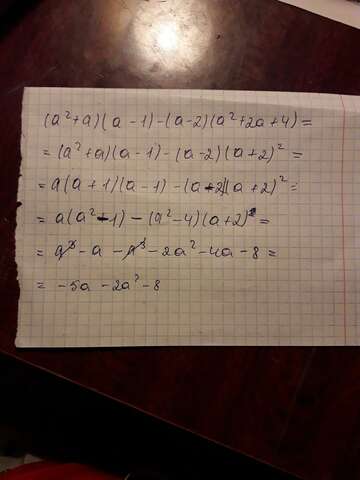 (a²+a)(a-1)-(a-2)(a²+2a+4)=
=(a²+a)(a-1)-(a-2)(a+2)²=
=a(a+1)(a-1)-(a-2)(a+2)²=
=a(a²-1)-(a²-4)(a+2)=
=a³-a-a³-2a²-4a-8=
=-5a-2a²-8